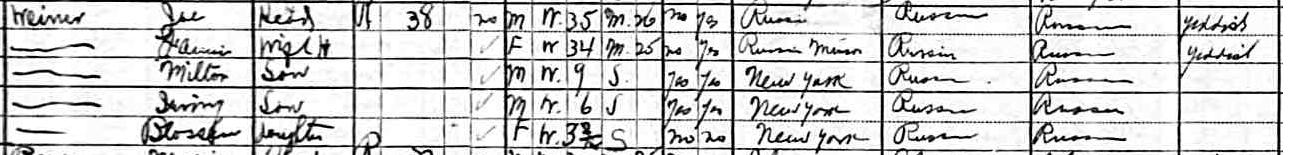 Weiner Joe Head R 38 no M W. 35 M. 26 no yes Russia Russia Russia Yiddish
Fannie Wife H F W 34 M. 25 no yes Russia Russia Russia Yiddish
Milton Son M W. 9 S. yes yes New York Russia Russia
Irving Son M W. 6 S yes yes New York Russia Russia
Blossom Daughter F W. S no no New York Russia Russia